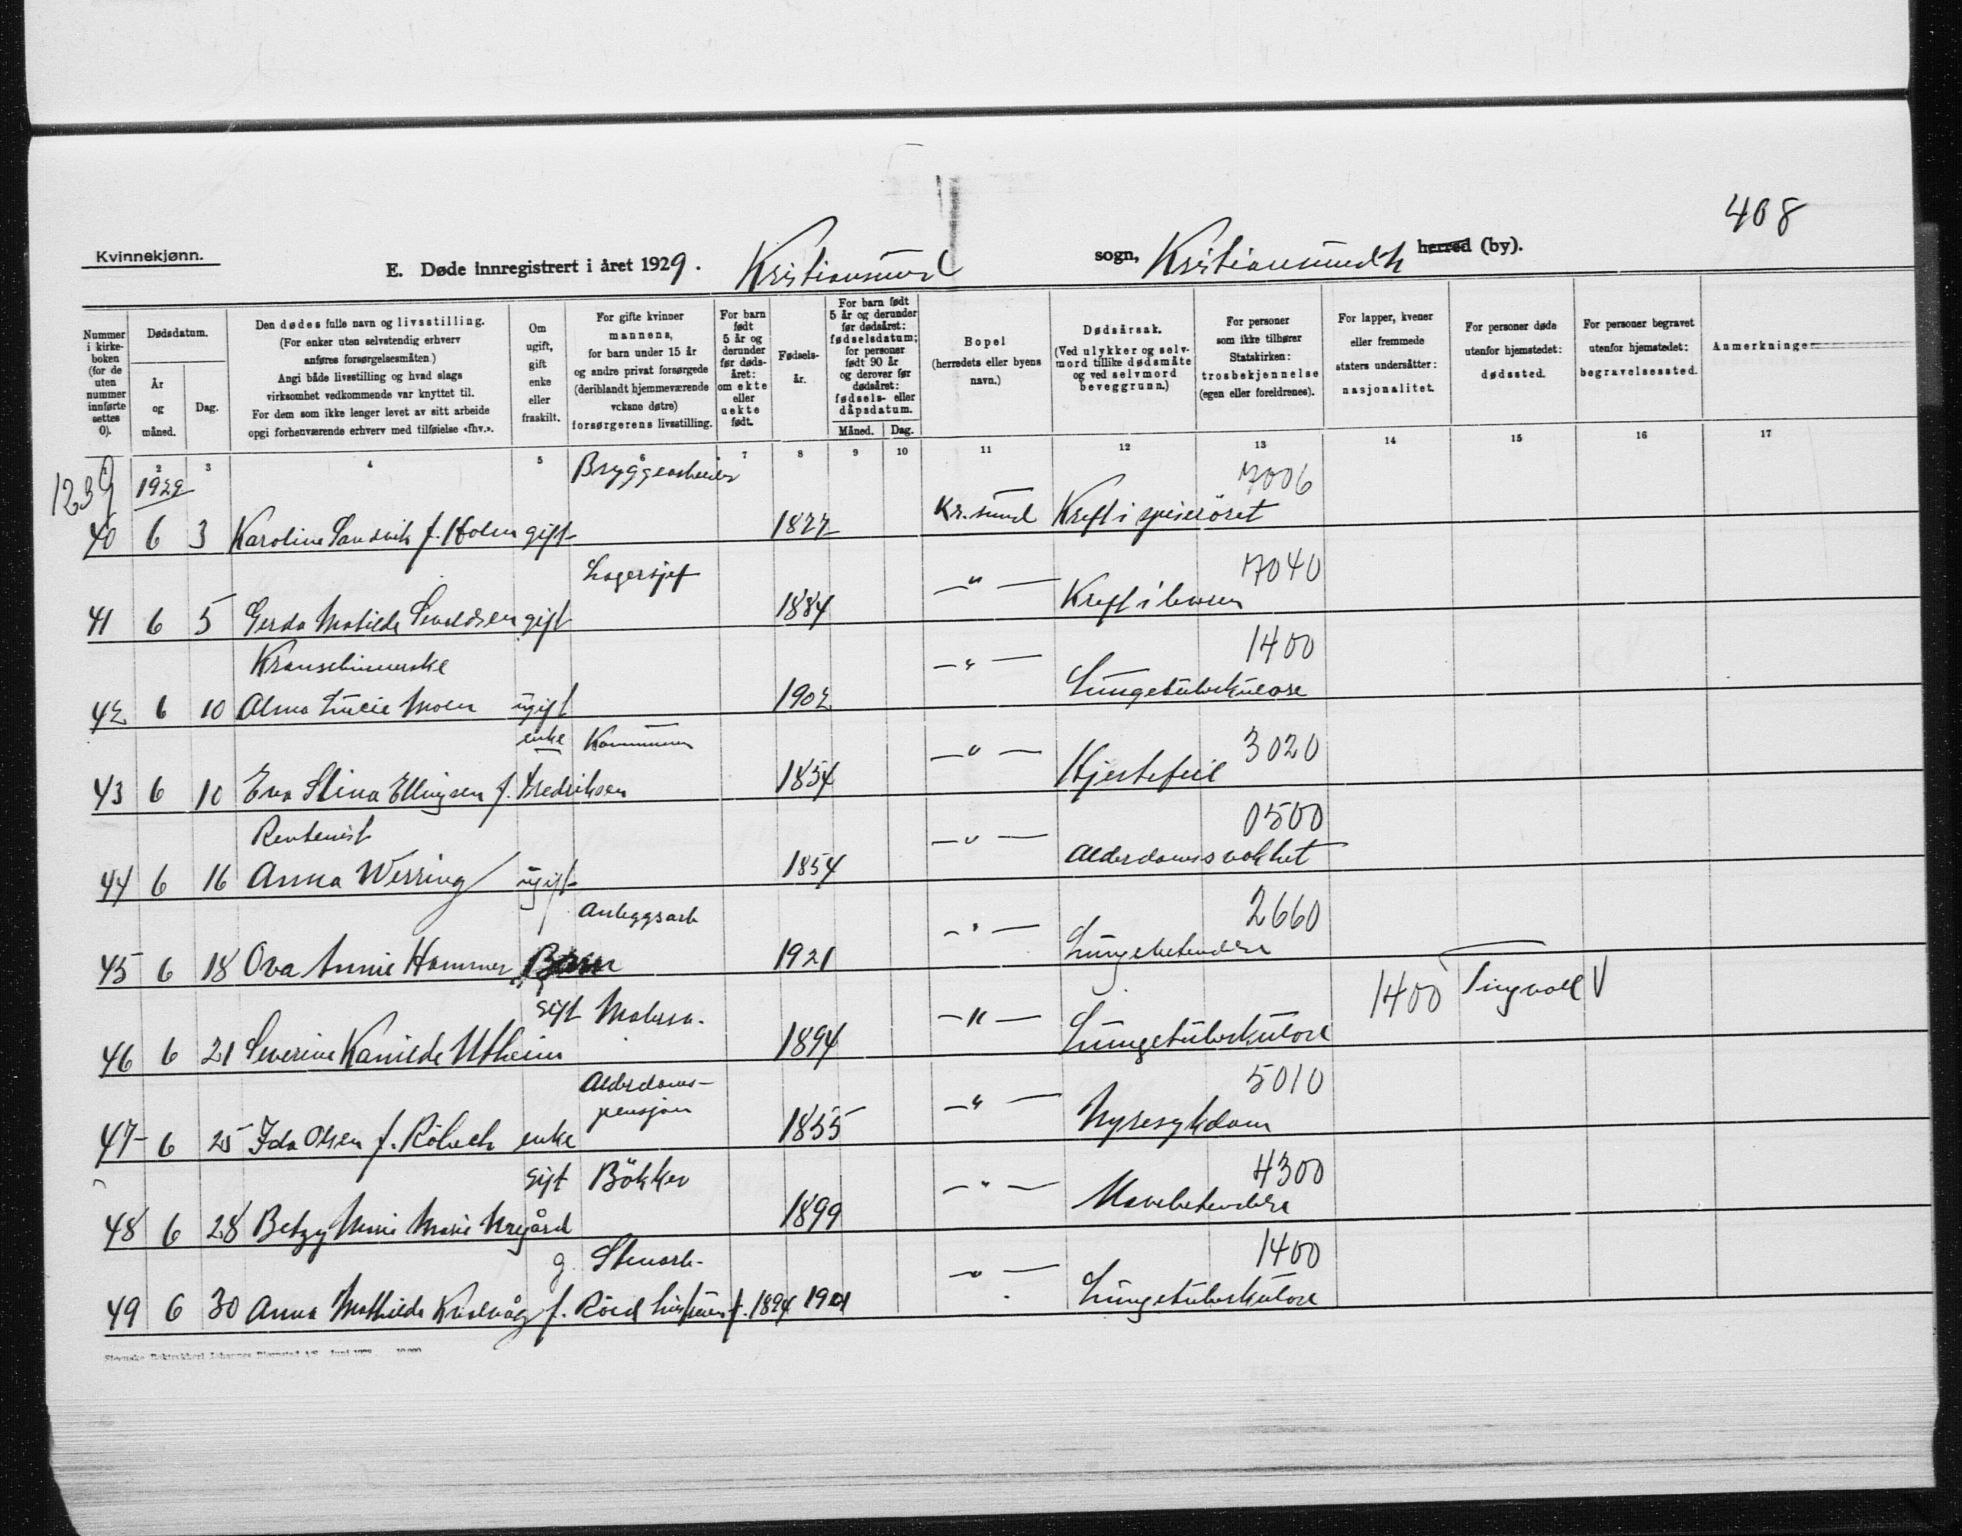 408
Kvinnekjønn.
E. Døde innregistrert i året 1929. Kristiansund sogn, Kristiansund N herred (by).
Nummer i kirkeboken (for de uten nummer innførte settes 0).
Dødsdatum.
År og måned.
Dag.
Den dødes fulle navn og livsstilling.
(For enker uten selvstendig erhverv anføres forsørgelsesmåten.)
Angi både livsstilling og hvad slags virksomhet vedkommende var knyttet til.
For dem som ikke lenger levet av sitt arbeide opgi forhenværende erhverv med tilføielse «fhv.».
Om ugift, gift enke eller fraskilt.
For gifte kvinner mannens, for barn under 15 år og andre privat forsørgede (deriblandt hjemmeværende voksne døtre) forsørgerens livsstilling.
For barn født 5 år og derunder før dødsåret: om ekte eller uekte født.
Fødselsår.
For barn født 5 år og derunder før dødsåret: fødselsdatum; for personer født 90 år og derover før dødsåret: fødsels- eller dåpsdatum.
Måned. Dag.
Bopel
(herredets eller byens navn.)
Dødsårsak.
(Ved ulykker og selvmord tillike dødsmåte og ved selvmord beveggrunn.)
For personer som ikke tilhører Statskirken: trosbekjennelse (egen eller foreldrenes).
For lapper, kvener eller fremmede staters undersåtter: nasjonalitet.
For personer døde utenfor hjemstedet: dødssted.
For personer begravet utenfor hjemstedet: begravelsessted.
Anmerkninger
2 3 4 5 6 7 8 9 10 11 12 13 14 15 16 17
1239 1929 Bryggearbeider 7006
40 6 3 Karoline Sandvik f. Holm gift 1877 Kr.sund Kreft i spiseröret
Lagersjef 7040
41 6 5 Gerda Matilde Sevaldsen gift 1884 —"— Kreft i leveren
Kransebinnerske 1400
42 6 10 Alma Lucie Moen ugift 1902 —"— Lungetuberkulose
enke Kommunen 3020
43 6 10 Eva Stina Ellingsen f. Fredriksen 1854 —"— Hjertefeil
Rentenist 0500
44 6 16 Anna Werring ugift 1854 —"— Alderdomssvakhet
Anleggsarb 2660
45 6 18 Ova Annie Hammer Barn 1921 —"— Lungebetendelse
gift 1400 Tingvoll V
46 6 21 Severine Kamilde Utheim 1894 —"— Lungetuberkulose
Alderdoms- 5010
pensjon
47 6 25 Ida Olsen f. enke 1855 —"— Nyresykdom
gift Bökker 4300
48 6 28 Betzy Marie 1899 —"— Mavebetendelse
g. Stenarb. 1400
49 6 30 Anna Mathilde Kvalvåg f. 1894 1901 —"— Lungetuberkulose